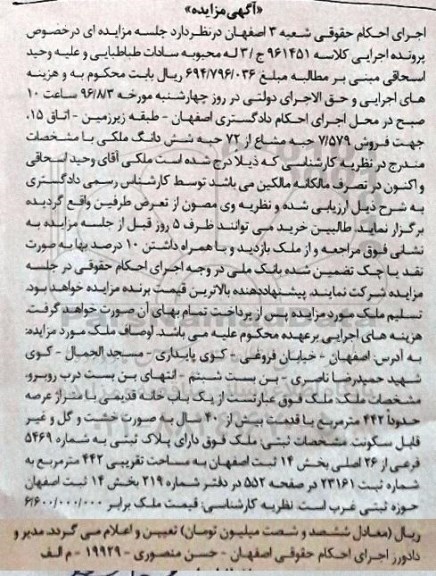 «آگهی مزایده»
اجرای احکام حقوقی شعبه ۳ اصفهان در نظر دارد جلسه مزایده ای در خصوص
پرونده اجرایی کلاسه ۹۶۱۴۵۱ ج/۳ له محبوبه سادات طباطبایی و علیه وحید
اسحاقی مبنی بر مطالبه مبلغ ۶۹۴/۷۹۶/۰۳۶ ریال بابت محکوم به و هزینه
های اجرایی و حق الاجرای دولتی در روز چهارشنبه مورخه ۹۶/۸/۳ ساعت ۱۰
صبح در محل اجرای احکام دادگستری اصفهان - طبقه زیرزمین - اتاق ۱۵،
جهت فروش ۷/۵۷۹ حبه مشاع از ۷۲ حبه شش دانگ ملکی با مشخصات
مندرج در نظریه کارشناسی که ذیلا درج شده است ملکی آقای وحید اسحاقی
و اکنون در تصرف مالکانه مالکین می باشد توسط کارشناس رسمی دادگستری
به شرح ذیل ارزیابی شده و نظریه وی مصون از تعرض طرفین واقع گردیده
برگزار نماید. طالبین خرید می توانند ظرف ۵ روز قبل از جلسه مزایده به
نشانی فوق مراجعه و از ملک بازدید و با همراه داشتن ۱۰ درصد بها به صورت
نقد یا چک تضمین شده بانک ملی در وجه اجرای احکام حقوقی در جلسه
مزایده شرکت نمایند. پیشنهاددهنده بالاترین قیمت برنده مزایده خواهد بود.
تسلیم ملک مورد مزایده پس از پرداخت تمام بهای آن صورت خواهد گرفت.
هزینه های اجرایی برعهده محکوم علیه می باشد. اوصاف ملک مورد مزایده:
به آدرس: اصفهان - خیابان فروغی - کوی پایداری - مسجد الجمال - کوی
شهید حمیدرضا ناصری - بن بست شبنم - انتهای بن بست درب روبرو.
مشخصات ملک: ملک فوق عبارتست از یک باب خانه قدیمی با متراژ عرصه
حدوداً ۴۴۲ مترمربع با قدمت بیش از ۴۰ سال به صورت خشت و گل و غیر
قابل سکونت. مشخصات ثبتی: ملک فوق دارای پلاک ثبتی به شماره ۵۴۶۹
فرعی از ۲۶ اصلی بخش ۱۴ ثبت اصفهان به مساحت تقریبی ۴۴۲ مترمربع به
شماره ثبت ۲۳۱۶۱ در صفحه ۵۵۲ در دفتر شماره ۲۱۹ بخش ۱۴ ثبت اصفهان
حوزه ثبتی غرب است. نظریه کارشناسی: قیمت ملک برابر ۶/۶۰۰/۰۰۰/۰۰۰
ریال (معادل ششصد و شصت میلیون تومان) تعیین و اعلام می گردد. مدیر و
دادورز اجرای احکام حقوقی اصفهان - حسن منصوری - ۱۹۹۲۹ - م الف